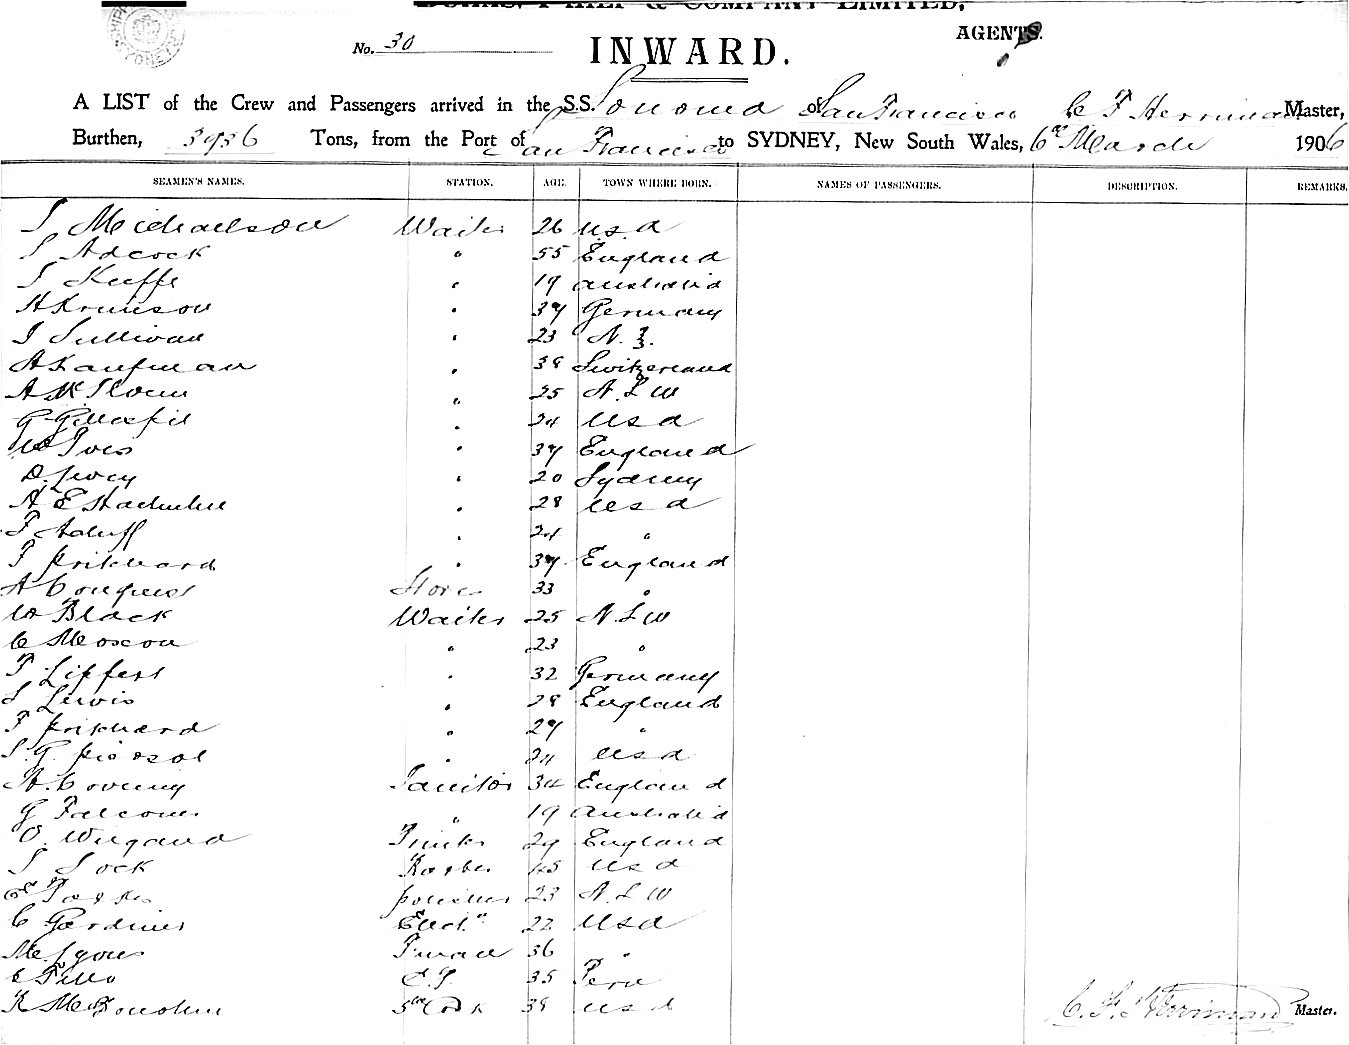 BURNS, PHILP & COMPANY LIMITED,
AGENTS.
No. 30
INWARD.
A LIST of the Crew and Passengers arrived in the S.S. Sonoma of San Francisco C F Herriman Master,
Burthen, 3956 Tons, from the Port of San Francisco to SYDNEY, New South Wales, 6th March 1906
SEAMEN'S NAMES. STATION. AGE. TOWN WHERE BORN. NAMES OF PASSENGERS. DESCRIPTION. REMARKS.
Michaelson Waiter 26 USA
Adcock " 55 England
Keeffe " 19 Australia
H " 37 Germany
J Sullivan " 23 N.Z.
A Kaufman " 38 Switzerland
A " 25 N.S.W
G Gillespie " 24 USA
W Ives " 37 England
D. " 20 Sydney
A E " 28 USA
F " 24 "
T Prichard " 37 England
A Conquest Stores 33 "
W Black Waiter 25 N.S.W
C Moscow " 23 "
F Lippert " 32 Germany
S Lewis " 28 England
F Prichard " 27 "
G. " USA
A. Janitor 34 England
G Falconer " 19 Australia
O. Wiegand Printer 29 England
S Barber 45 USA
23 N.S.W
C Gardiner Elect'n 22 USA
M. Lyons 36 "
E C.P. 35 Peru
R 5th Cook 38 USA
C. F. Herriman Master.